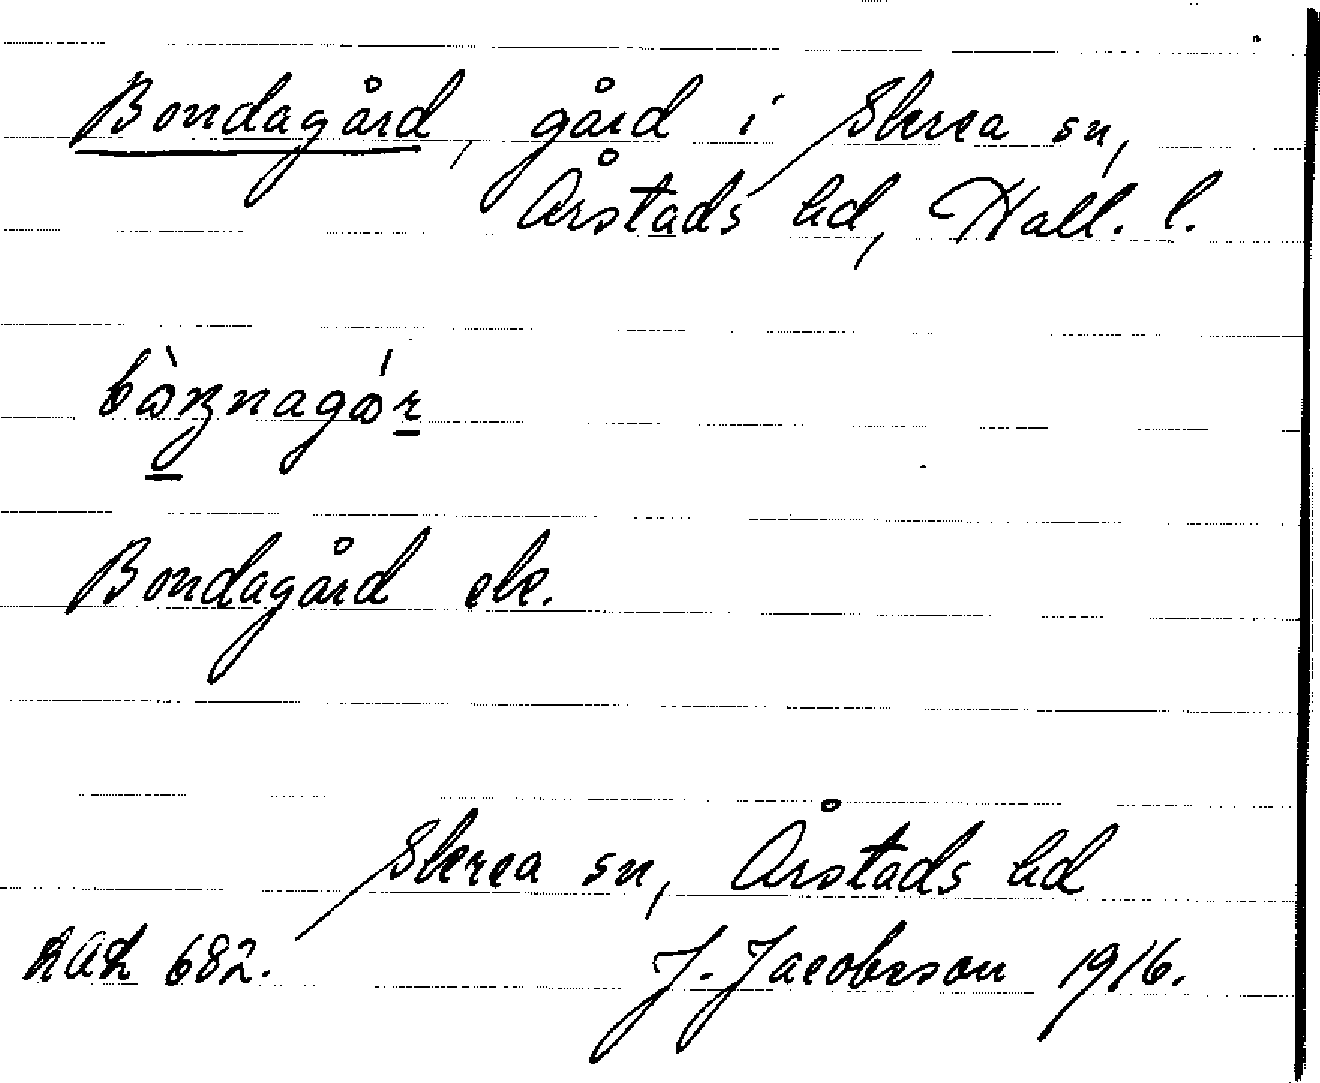 Bondagård, gård i Skrea sn,
Årstads hd, Hall. l.
Bondagård ek.
Skrea sn, Årstads hd
682.
J. Jacobsson 1916.